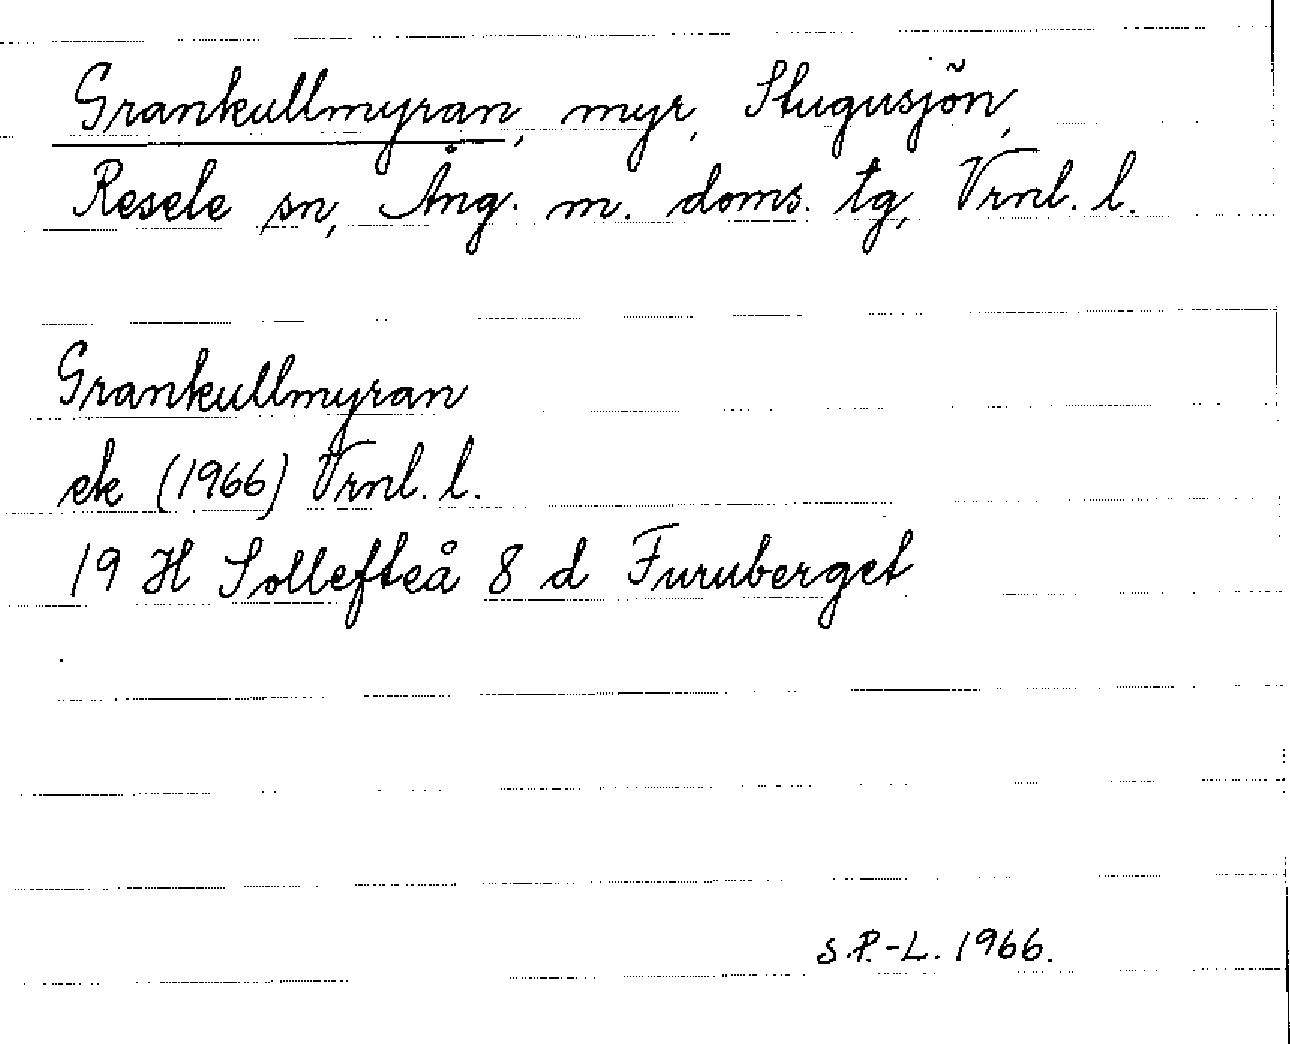 Grankullmyran, myr, Stugusjön,
Resele sn, Ång. m. doms. tg, Vrnl. l.
Grankullmyran
ek (1966) Vrnl. l.
19 H Sollefteå 8 d Furuberget
S.P.-L. 1966.